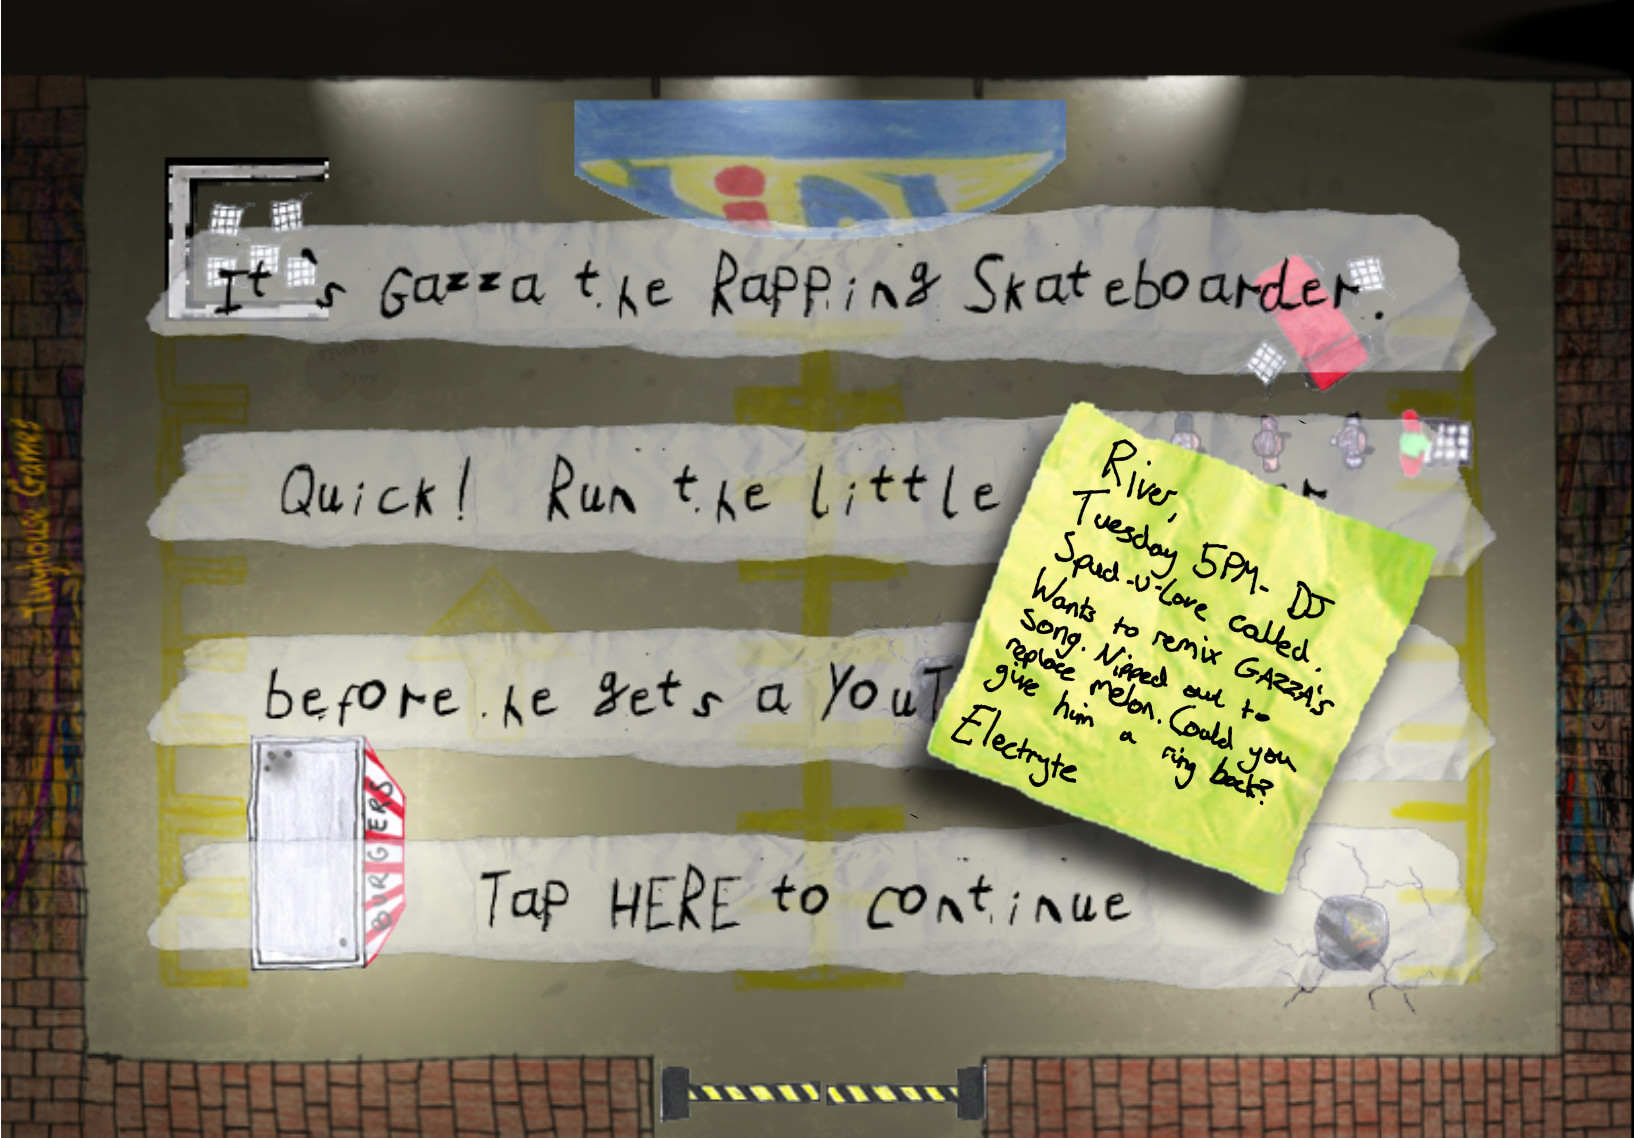 LiDL
It's Gazza the Rapping Skateboarder.
Quick! Run the little
before he gets a YouT
Tap HERE to continue
River,
Tuesday 5PM- DJ
Spud-u-Love called.
Wants to remix GAZZA's
song. Nipped out to
replace melon. Could you
give him a ring back?
Electryte
BURGERS
Tinyhouse Games